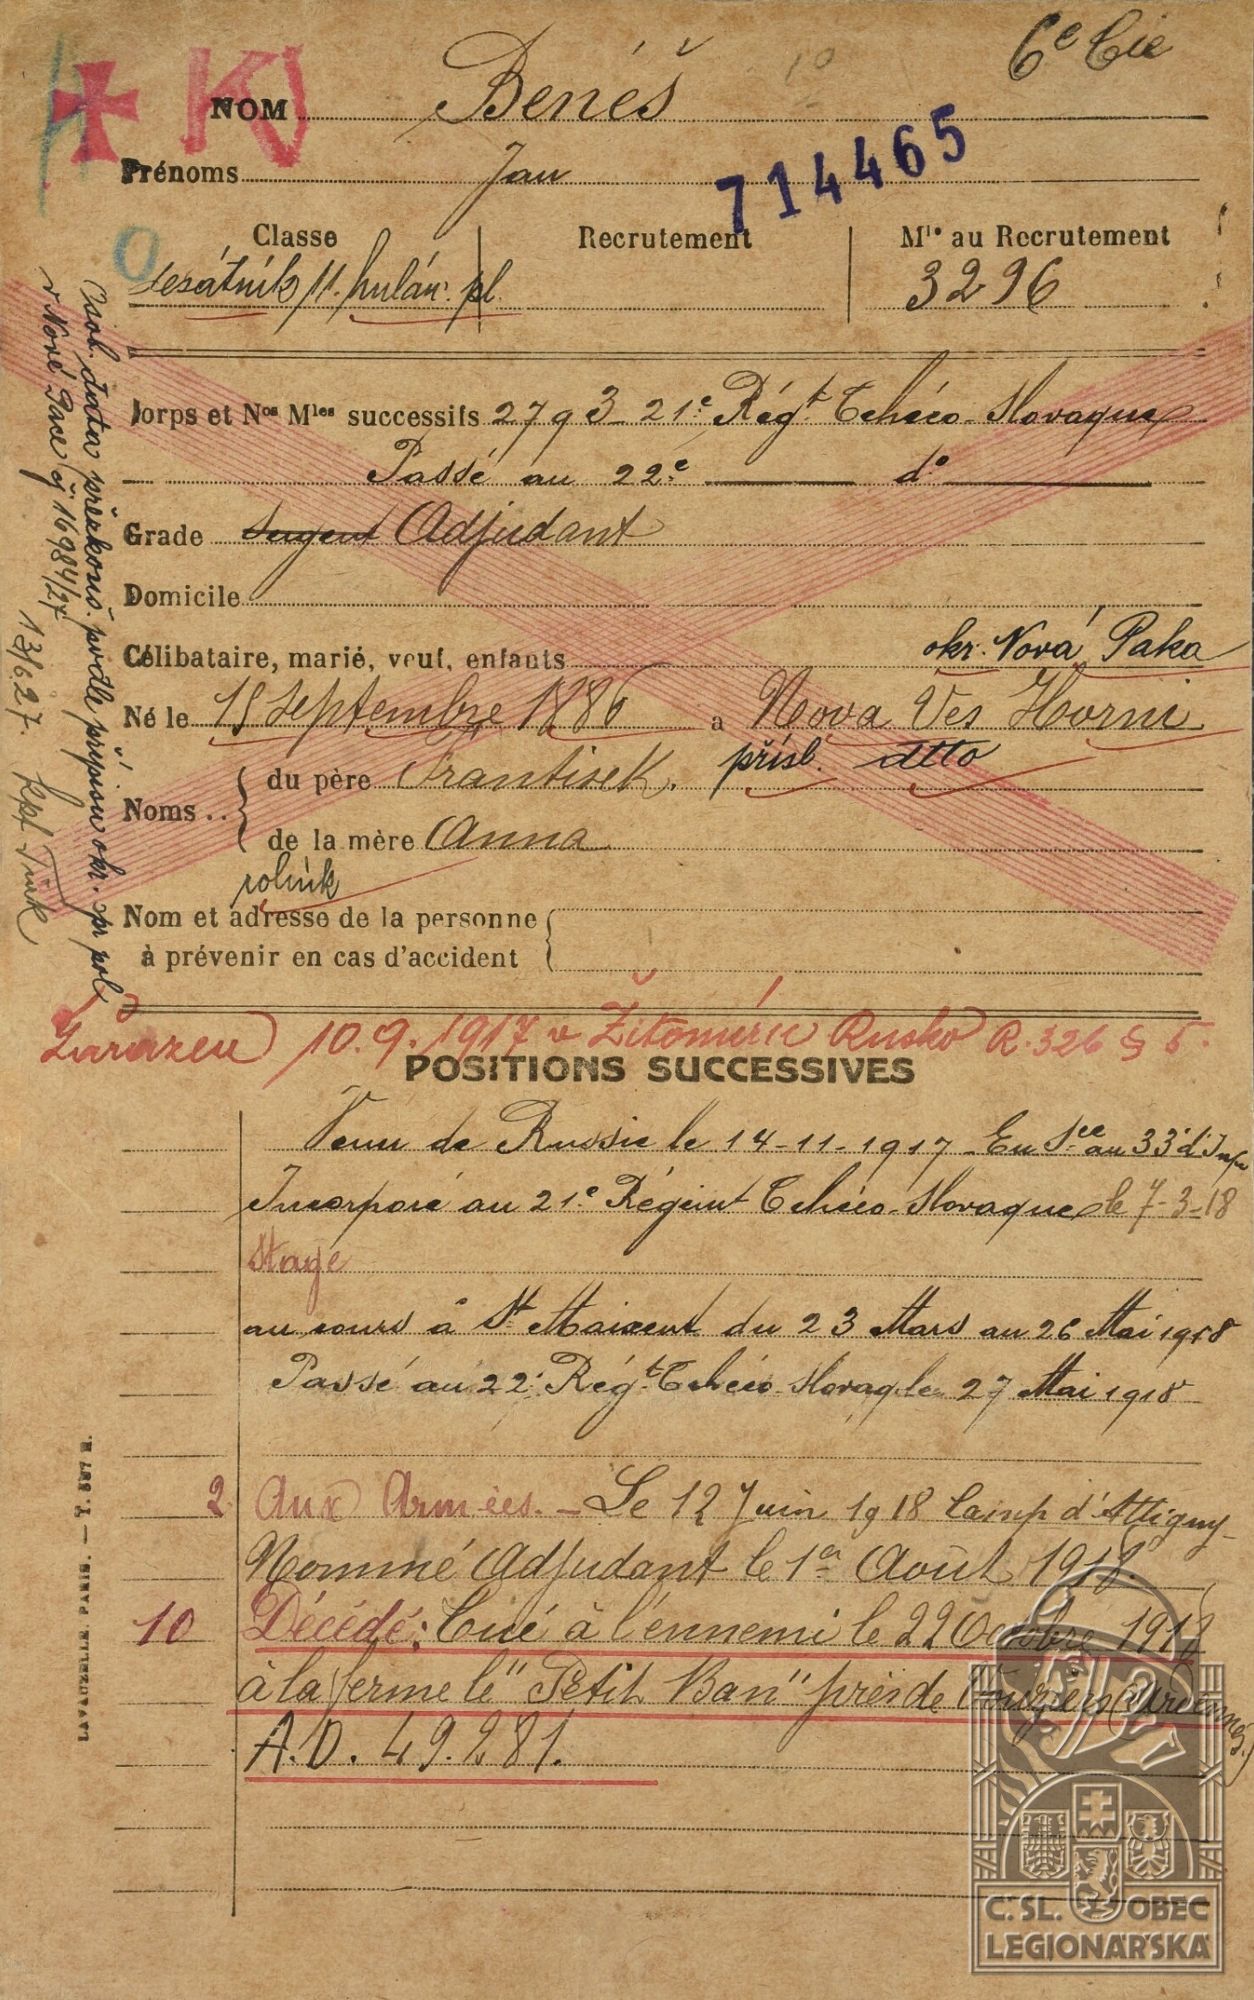 6e Cie
10
KJ
NOM Benéš
Prénoms Jan
714465
Classe Recrutement Mle au Recrutement
desátník 11. hulán. pl. 3296
Corps et Nos Mles successifs 2793 - 21e Régt Tchéco-Slovaque
Passé au 22e do
Grade Sergent Adjudant
Domicile
Célibataire, marié, veuf, enfants okr. Nová Paka
Né le 15 Septembre 1886 à Nova Ves Horni
přísl. dtto
Noms .. du père Frantisek.
de la mère Anna
rolník
Nom et adresse de la personne
à prévenir en cas d'accident
Osob. data přezkouš. podle přípisu okr. sp. pol
v Nové Pace čj 16984/27
13/6.27.
Zařazen 10.9.1917 v Žitoměři Rusko R. 326 § 5.
POSITIONS SUCCESSIVES
Venu de Russie le 14-11-1917 - En Sce au 33 d'Infie
Incorporé au 21e Régiment Tchéco-Slovaque le 7-3-18
Stage
au cours à St Maixent du 23 Mars au 26 Mai 1918
Passé au 22e Régt Tchéco-Slovaq. le 27 Mai 1918
2 Aux Armées. - Le 12 Juin 1918 Camp d'Attigny
Nommé Adjudant le 1er Août 1918.
10 Décédé: Tué à l'ennemi le 22 Octobre 1918
à la ferme le "Petit Ban" près de Vouziers (Ardennes.)
A.D. 49.281.
LAVAUZELLE PARIS. — T. 587 R.
Č. SL. OBEC
LEGIONÁŘSKÁ